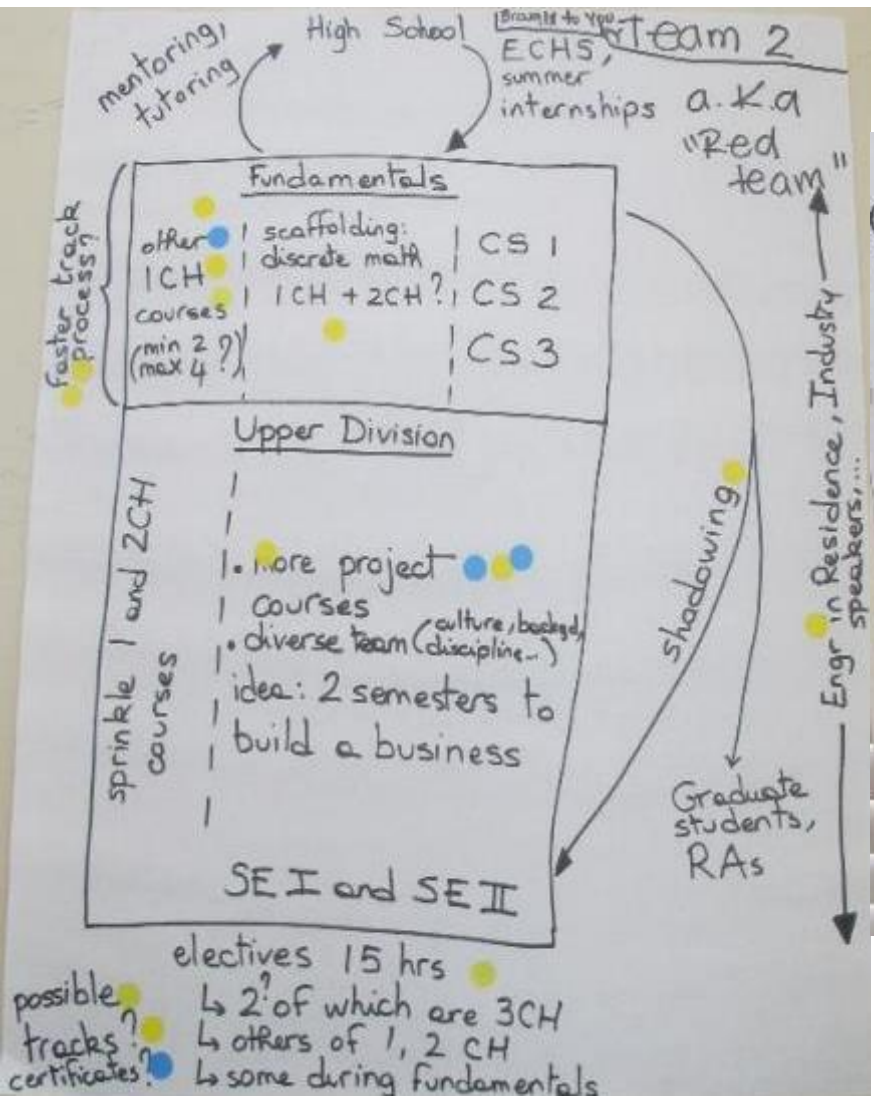 Brought to you by
Team 2
a.k.a
"Red
team"
High School
mentoring,
tutoring
ECHS,
summer
internships
Fundamentals
Faster track
process?
other
1CH
courses
(min 2 ?)
(max 4 )
scaffolding:
discrete math
1CH + 2CH?
CS 1
CS 2
CS 3
Upper Division
sprinkle 1 and 2CH
courses
• more project
courses
• diverse team (culture, backgd,
discipline..)
idea: 2 semesters to
build a business
SE I and SE II
shadowing
Graduate
students,
RAs
Engr in Residence, Industry
speakers,...
electives 15 hrs
↳ 2? of which are 3CH
↳ others of 1, 2 CH
↳ some during fundamentals
possible
tracks?
certificates?